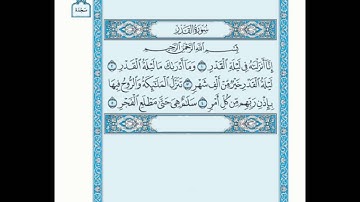 سجدة
سورة القدر
بسم الله الرحمن الرحيم
إِنَّا أَنزَلْنَاهُ فِي لَيْلَةِ الْقَدْرِ ١ وَمَا أَدْرَاكَ مَا لَيْلَةُ الْقَدْرِ ٢
لَيْلَةُ الْقَدْرِ خَيْرٌ مِّنْ أَلْفِ شَهْرٍ ٣ تَنَزَّلُ الْمَلَائِكَةُ وَالرُّوحُ فِيهَا
بِإِذْنِ رَبِّهِم مِّن كُلِّ أَمْرٍ ٤ سَلَامٌ هِيَ حَتَّىٰ مَطْلَعِ الْفَجْرِ ٥